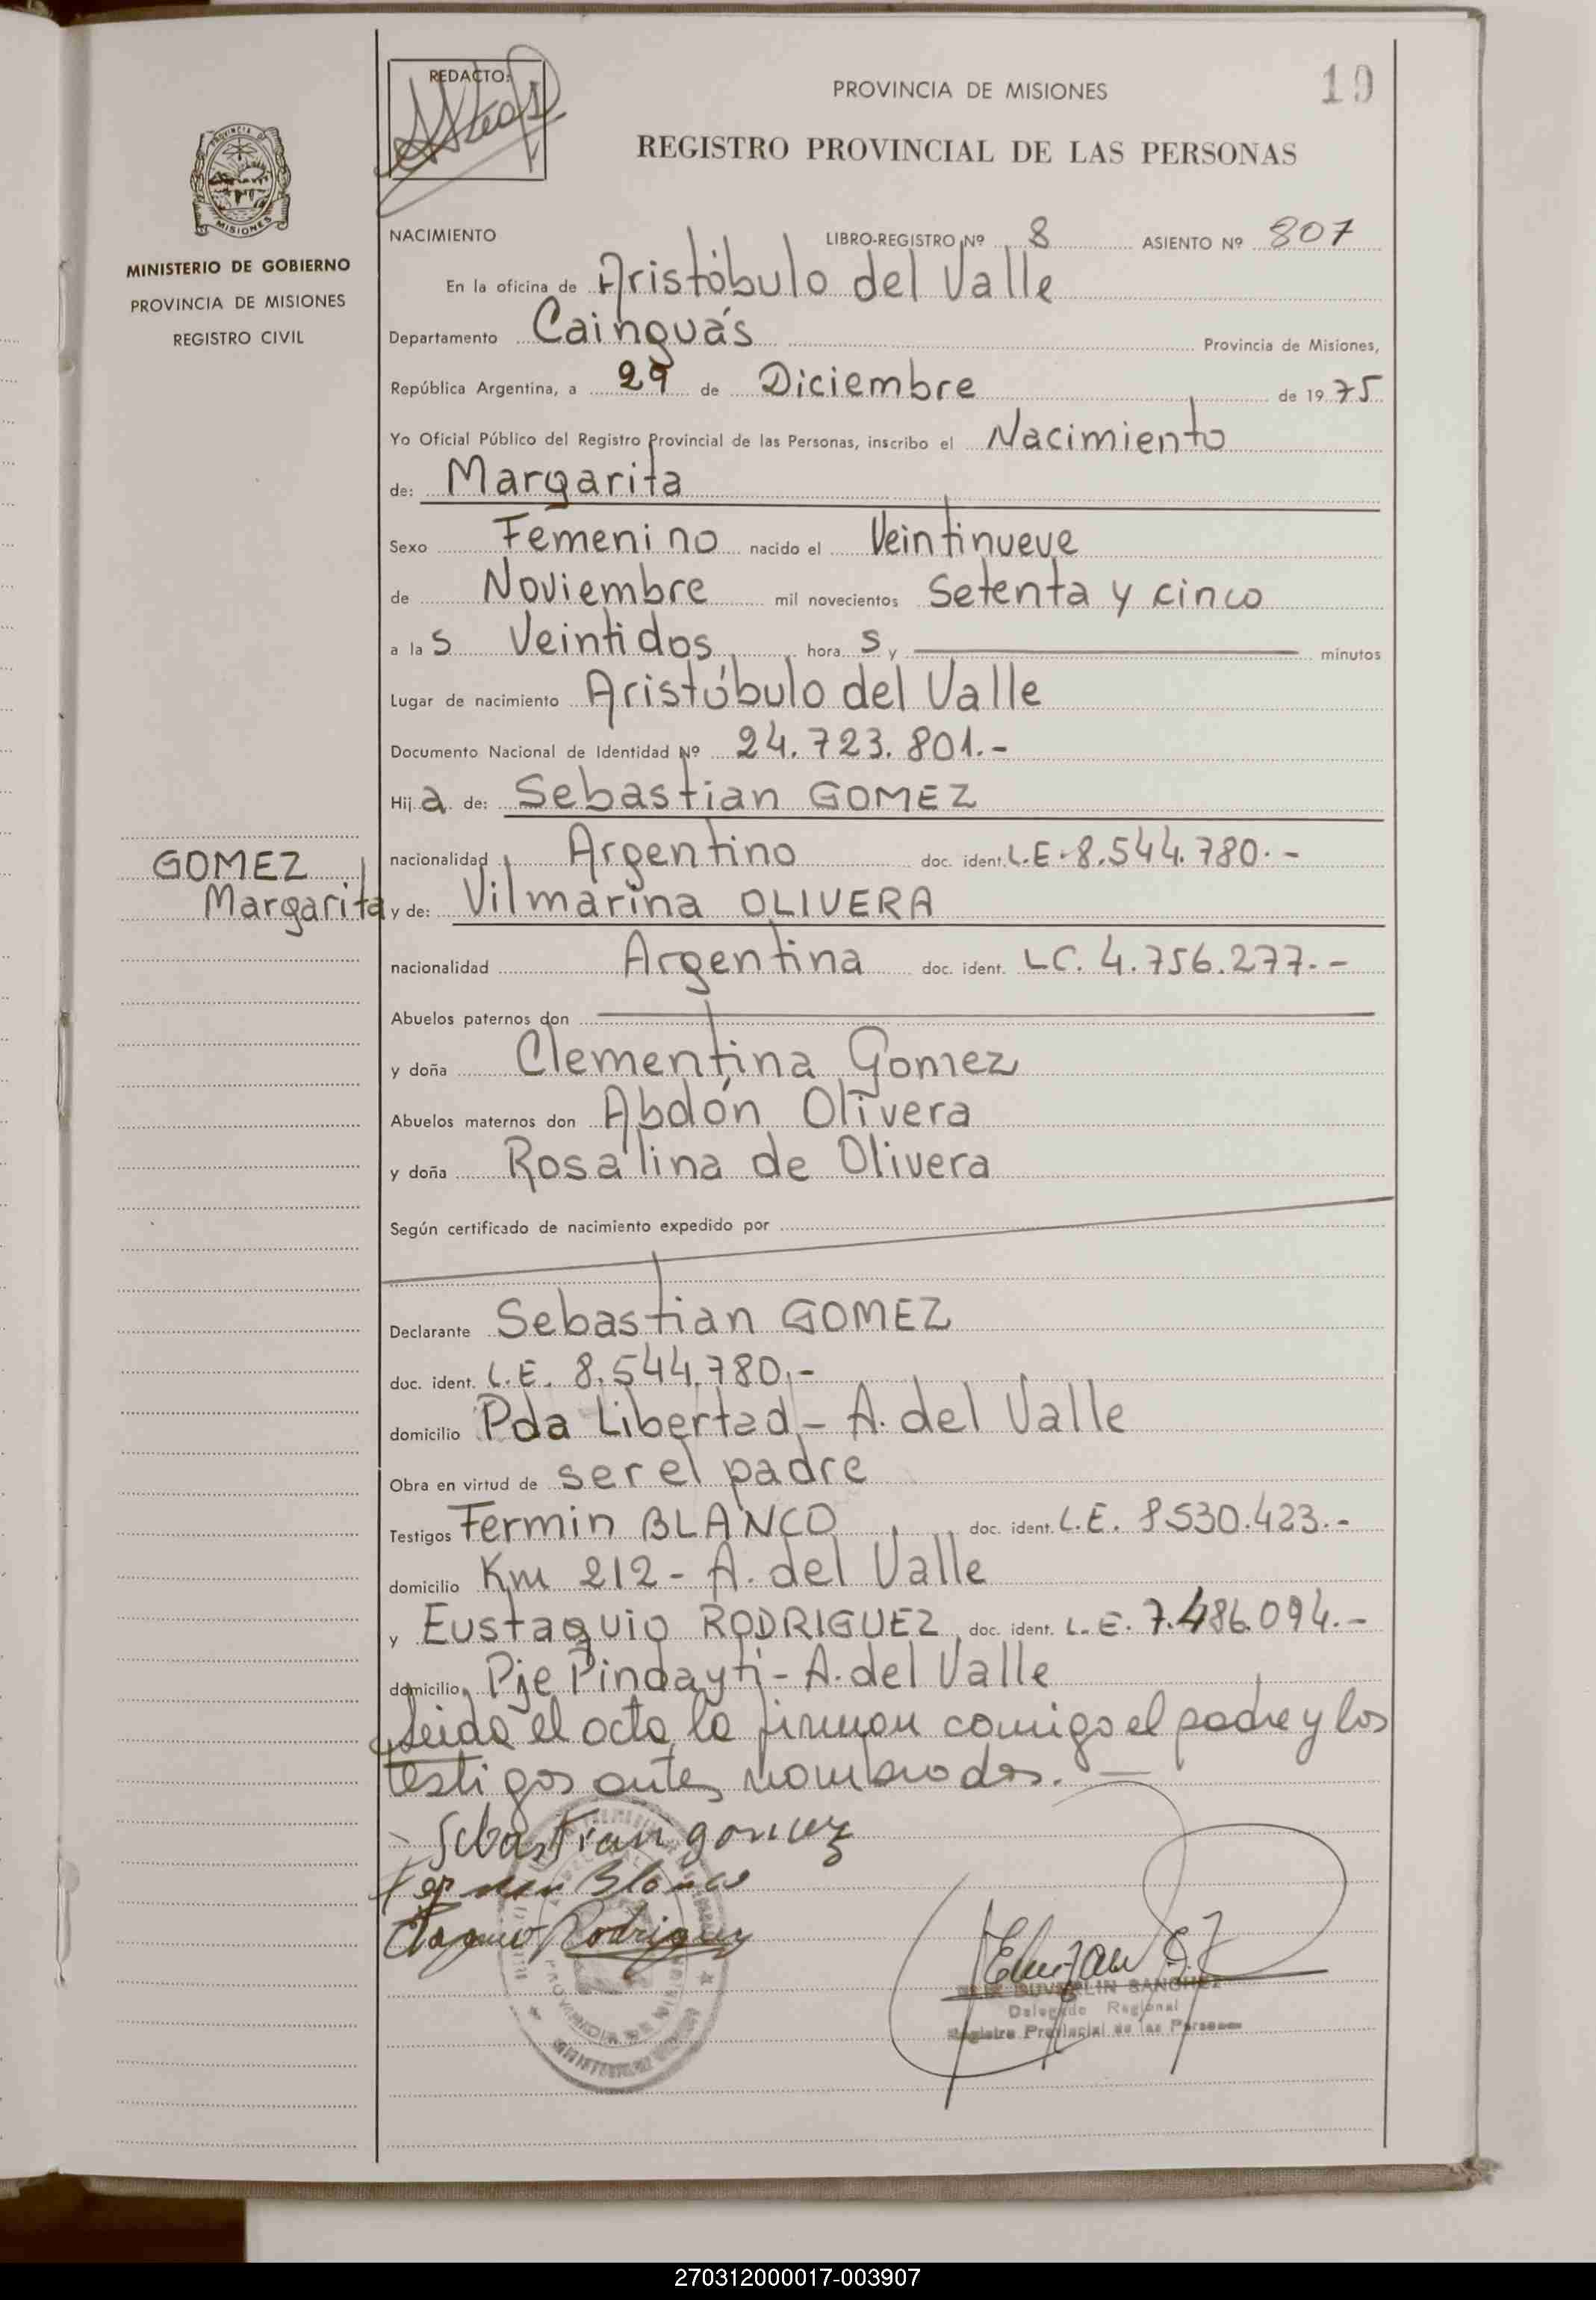 REDACTO:
PROVINCIA DE MISIONES
19
REGISTRO PROVINCIAL DE LAS PERSONAS
MISIONES
MINISTERIO DE GOBIERNO
PROVINCIA DE MISIONES
REGISTRO CIVIL
NACIMIENTO LIBRO-REGISTRO Nº 8 ASIENTO Nº 807
En la oficina de Aristóbulo del Valle
Departamento Cainguás Provincia de Misiones,
República Argentina, a 29 de Diciembre de 1975
Yo Oficial Público del Registro Provincial de las Personas, inscribo el Nacimiento
de: Margarita
Sexo Femenino nacido el Veintinueve
de Noviembre mil novecientos Setenta y cinco
a las Veintidos horas y minutos
Lugar de nacimiento Aristóbulo del Valle
Documento Nacional de Identidad Nº 24.723.801.-
Hija de: Sebastian GOMEZ
nacionalidad Argentino doc. ident. L.E-8.544.780.-
GOMEZ
Margarita
y de: Vilmarina OLIVERA
nacionalidad Argentina doc. ident. LC. 4.756.277.-
Abuelos paternos don
y doña Clementina Gomez
Abuelos maternos don Abdón Olivera
y doña Rosalina de Olivera
Según certificado de nacimiento expedido por
Declarante Sebastian GOMEZ
doc. ident. L.E. 8.544.780.-
domicilio Pda Libertad - A. del Valle
Obra en virtud de ser el padre
Testigos Fermin BLANCO, doc. ident. L.E. 8530.423.-
domicilio Km 212 - A. del Valle
y Eustaquio RODRIGUEZ, doc. ident. L.E. 7.486.094.-
domicilio Pje Pindayti - A. del Valle
Leida el acta la firman comigo el padre y los
testigos antes nombrados.
Sebastian gomez
Fermin Blanco
Rodriguez
DUVERLIN SANCHEZ
Delegado Regional
Registro Provincial de las Personas
270312000017-003907